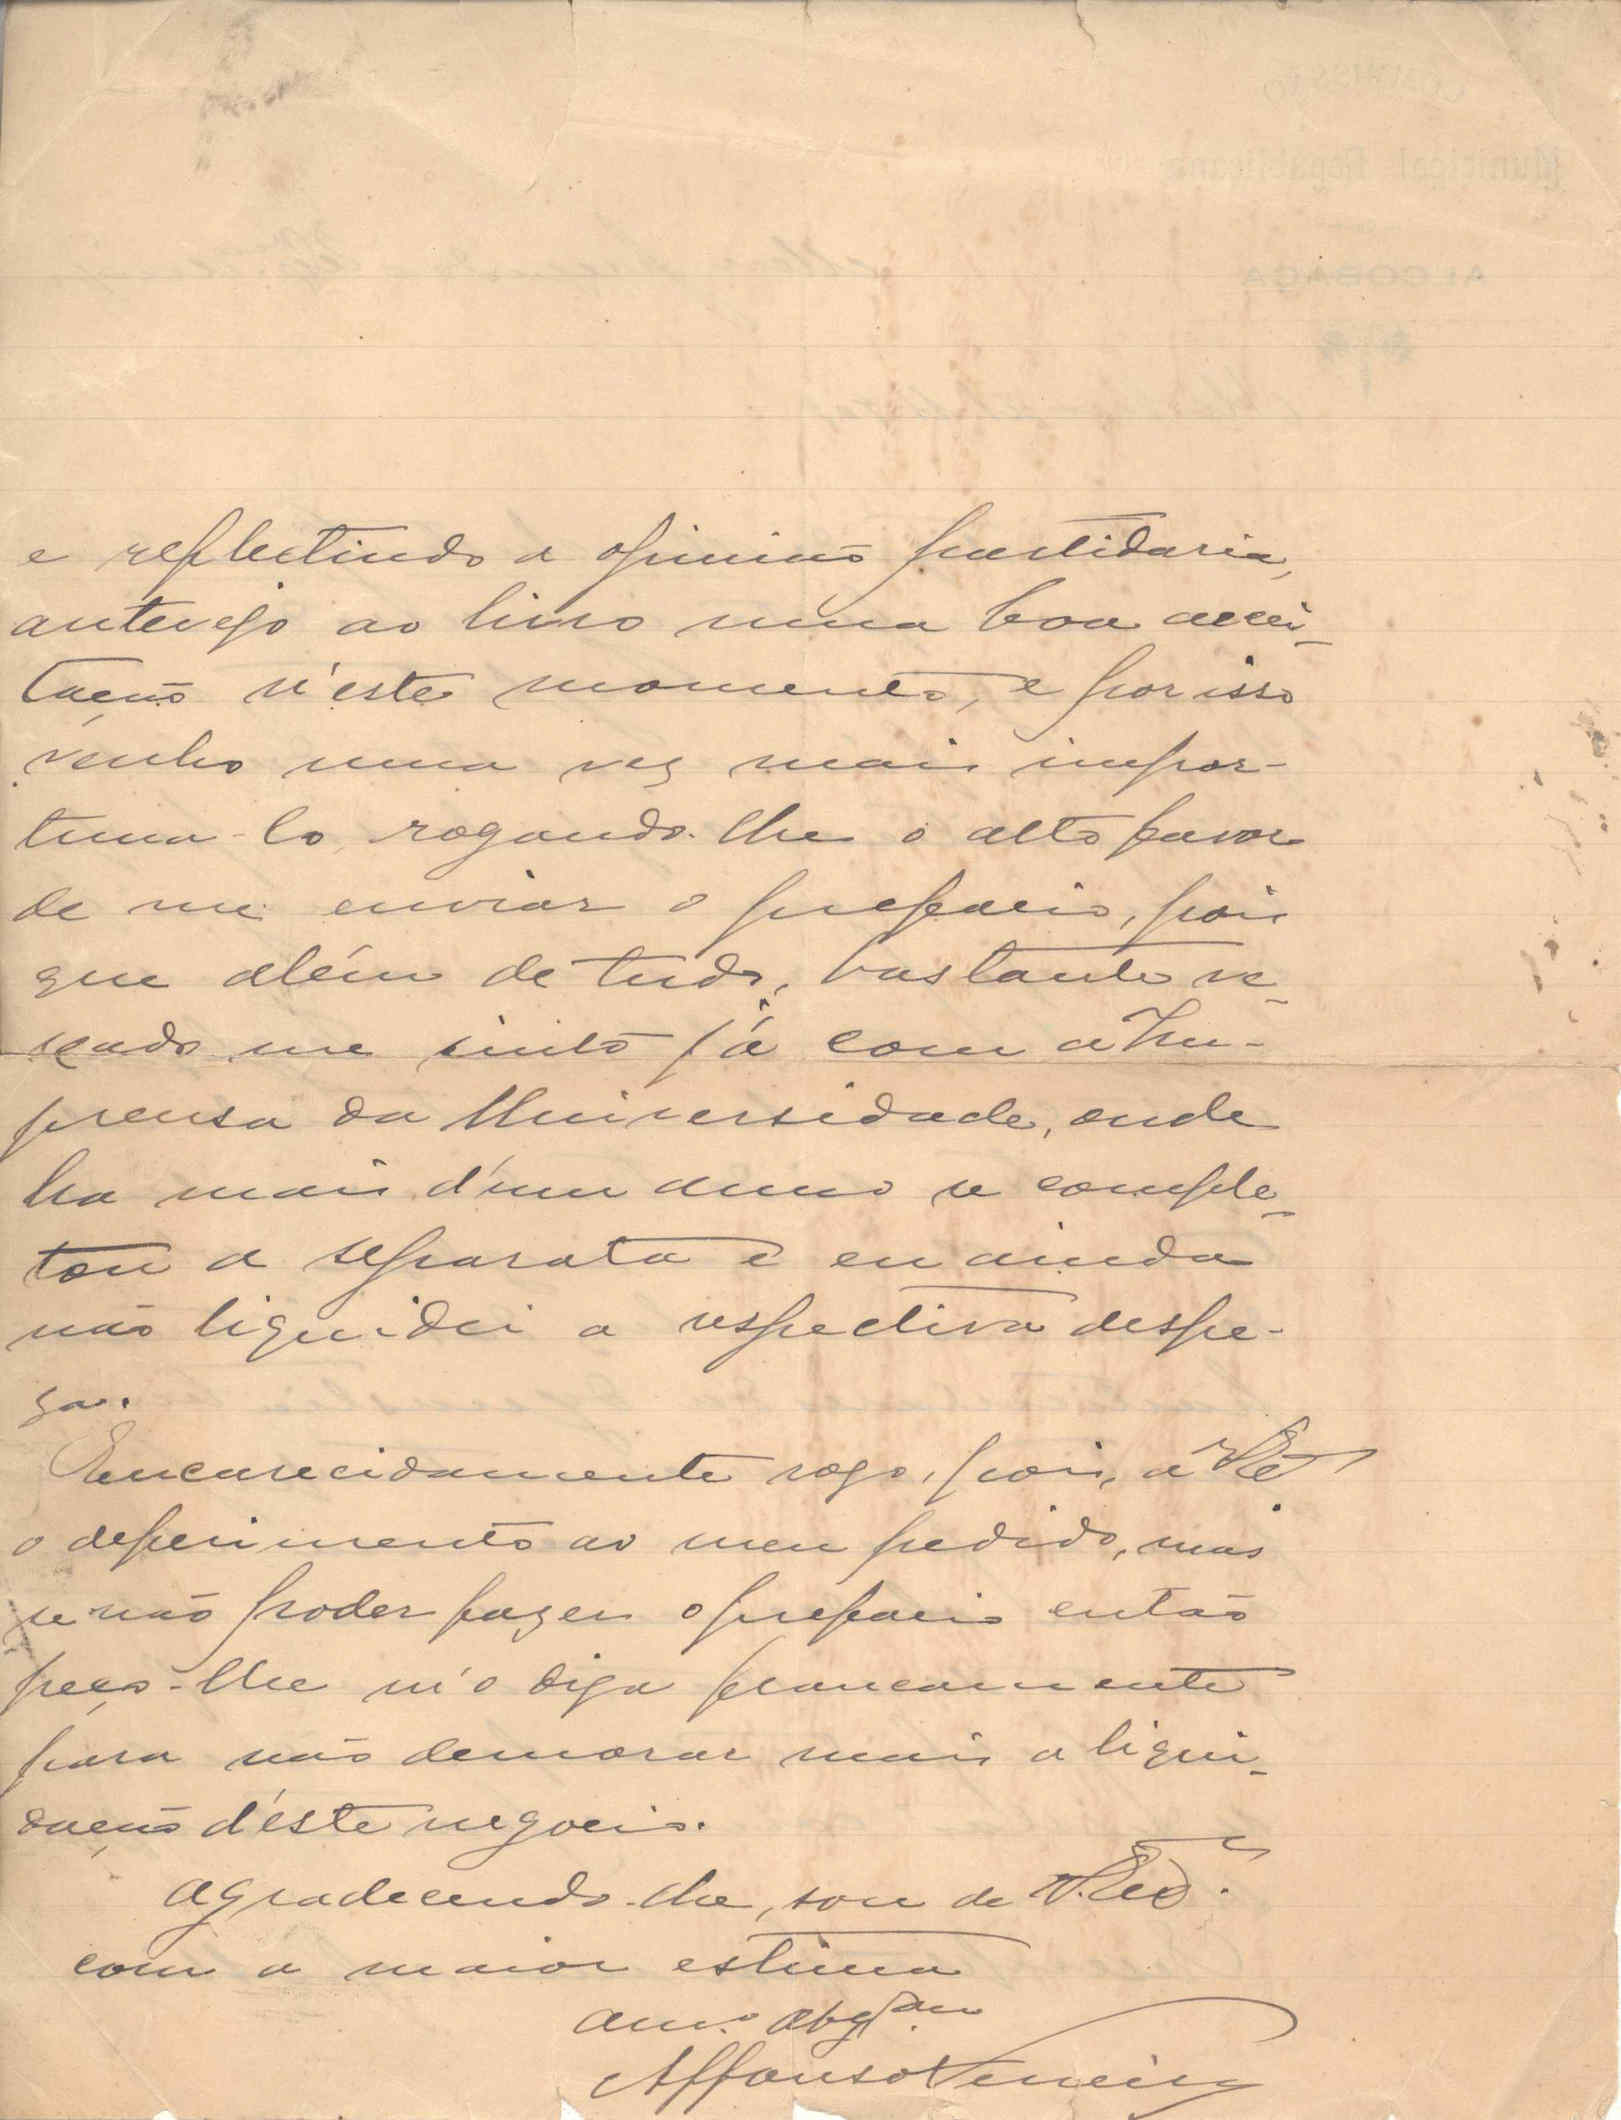 e reflectindo a opinião partidaria,
antevejo ao livro uma boa accei-
tação n'este momento, e por isso
venho uma vez mais impor-
tuna-lo, rogando-lhe o alto favor
de me enviar o prefacio, pois
que além de tudo, bastante ve-
xado me sinto já com a Im-
prensa da Universidade, onde
ha mais d'um anno se comple-
tou a separata e eu ainda
não liquidei a respectiva despe-
za.
Encarecidamente rogo, pois, a V. Ex.ª
o deferimento ao meu pedido, mas
se não poder fazer o prefacio então
peço-lhe m'o diga francamente
para não demorar mais a liqui-
dação d'este negocio.
Agradecendo-lhe, sou de V. Ex.ª
com a maior estima
am.º obg.
Affonso Ferreira
COMMISSÃO
Municipal Republicana
ALCOBAÇA